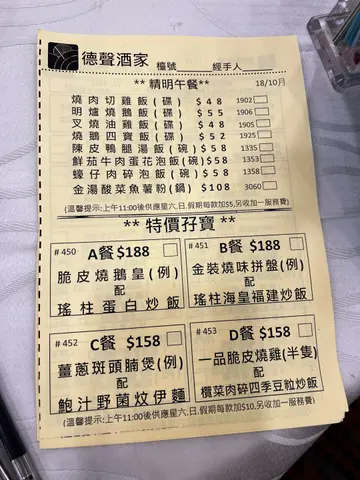 德聲酒家 檯號 經手人
** 精明午餐**
18/10月
燒肉切雞飯(碟) $48 1902
明爐燒鵝飯(碟) $55 1906
叉燒油雞飯(碟) $48 1905
燒鵝四寶飯(碟) $52 1925
陳皮鴨腿湯飯(碗) $58 1335
鮮茄牛肉蛋花泡飯(碗) $58 1353
蠔仔肉碎泡飯(碗) $58 1358
金湯酸菜魚薯粉(鍋) $108 3060
(溫馨提示:上午11:00後供應星六,日,假期每款加$5,另收加一服務費)
** 特價孖寶**
#450 A餐 $188
脆皮燒鵝皇(例)
配
瑤柱蛋白炒飯
#451 B餐 $188
金裝燒味拼盤(例)
配
瑤柱海皇福建炒飯
#452 C餐 $158
薑蔥斑頭腩煲(例)
配
鮑汁野菌炆伊麵
#453 D餐 $158
一品脆皮燒雞(半隻)
配
欖菜肉碎四季豆粒炒飯
(溫馨提示:上午11:00後供應星六,日,假期每款加$10,另收加一服務費)